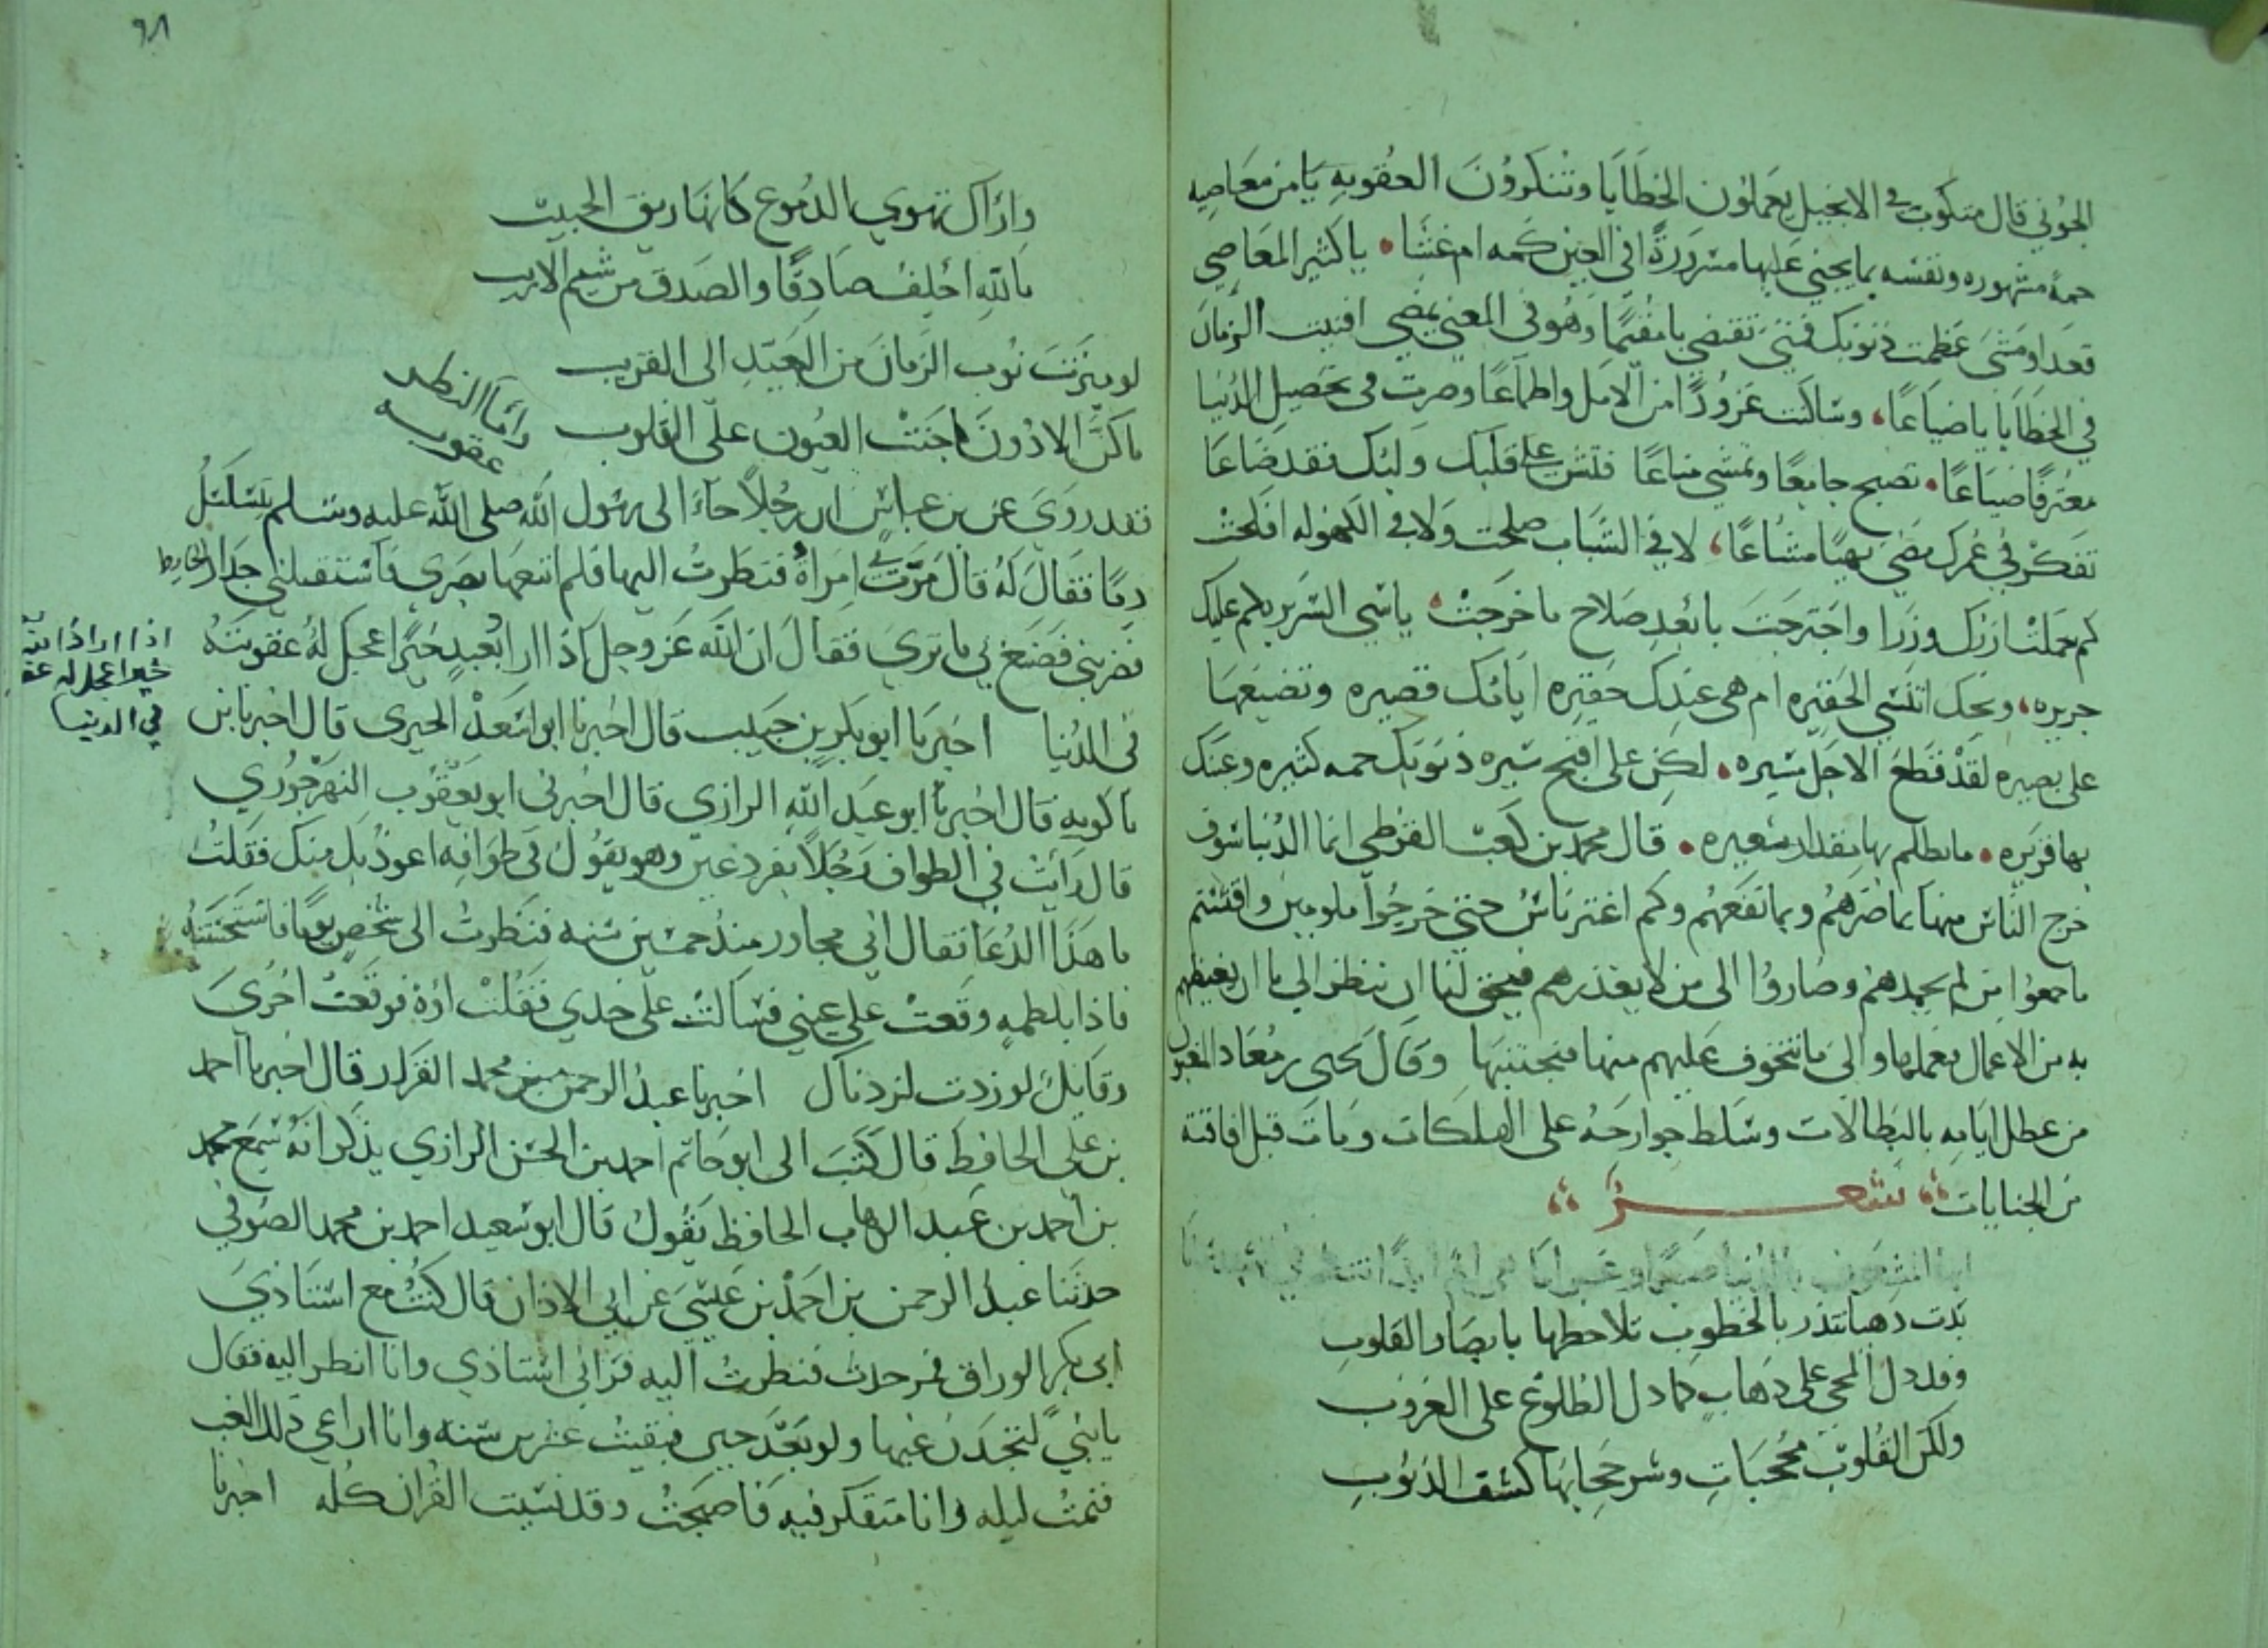 الجوني قال مكتوب في الانجيل يعملون الخطايا وتنكرون العقوبه يا من معاصيه
جمة مشهوره ونفسه بما يجني عليها مسرورة افي العين كمه ام غشا يا كثير المعاصي
قعد او مشى عظمت ذنوبك فمتى تقتضي يا مقيما وهو في المعني يمضي افنيت الزمان
في الخطايا ياضياعا وساكنت غرورا من الامل واطماعا وصرت في تحصيل الدنيا
معترفا صياعا تصبح جامعا وتمسي مناعا فتش على قلبك ولبك فقد ضاعا
تفكر في عمرك مضى نهبا مشاعا لا في الشباب صلحت ولا في الكهوله افلحت
كم حملت ازرك وزرا واجترحت يا بعيد صلاح ما خرجت ياسي السريربكم عليك
جريره ويحك اتنسى الحفيره ام هي عندك حقيره ايامك قصيره وتضيعها
على بصيره لقد قطع الاجل مسيره لكن على اقبح سيره ذنوبك جمه كثيره وعينك
بها قريره ما يظلم بها مقدار شعيره قال محمد بن كعب القرظي انما الدنيا سوق
خرج الناس منها بما ضرهم وبما نفعهم وكم اغتر ناس حتى خرجوا ملومين واقتسم
ما جمعوا من لم يحمدهم وصاروا الى من لا يعذرهم فيحق لنا ان ننظر الى ما ان نغبطهم
به من الاعمال فنعملها والى ما نتخوف عليهم منها فنجتنبها وقال يحيى بن معاذ المغبون
من عطل ايامه بالبطالات وسلط جوارحه على الهلكات ومات قبل افاقته
من الجنايات شعر
بدت دهيا تنذر بالخطوب تلاحظها بابصار القلوب
وقد دل المجي على ذهاب كما دل الطلوع على الغروب
ولكن القلوب محجبات وشر حجابها كسب الذنوب
٩٨
واراك تهوي الدموع كانها ريق الحبيب
بالله احلف صادقا والصدق من شيم الاريب
لو ميزت نوب الزمان من البعيد الى القريب
ما كن الا دون ما جنت العيون على القلوب
واما النظر
عقوبه
فقد روى عن بن عباس ان رجلا جاء الى رسول الله صلى الله عليه وسلم يتسلسل
دما فقال له قال مرت بي امراة فنظرت اليها فلم اتبعها بصري فاستقبلني جدار الحايط
فضربني فصنع بي ما ترى فقال ان الله عز وجل اذا اراد بعبد خيرا عجل له عقوبته
اذا اراد الله
خيرا عجل له عقو
في الدنيا
في الدنيا اخبرنا ابو بكر بن حبيب قال اخبرنا ابو اسعد الحيري قال اخبرنا بن
باكويه قال اخبرنا ابو عبد الله الرازي قال اخبرني ابو يعقوب النهرجوري
قال رايت في الطواف رجلا بفرد عين وهو يقول في طوافه اعوذ بك منك فقلت
ما هذا الدعا فقال اني مجاور منذ خمسين سنه فنظرت الى شخص يوما فاستحسنته
فاذا بلطمه وقعت على عيني فسالت على خدي فقلت اوه فوقعت اخرى
وقايل لو زدت لزدناك اخبرنا عبد الرحمن بن محمد القزاز قال اخبرنا احمد
بن علي الحافظ قال كتب الى ابو حاتم احمد بن الحسن الرازي يذكر انه سمع محمد
بن احمد بن عبد الوهاب الحافظ يقول قال ابو سعيد احمد بن محمد الصوفي
حدثنا عبد الرحمن بن احمد بن عيسى عن ابي الاذان قال كنت مع استاذي
ابي بكر الوراق فمر حدث فنظرت اليه فراني استاذي وانا انظر اليه فقال
يا بني لتجدن غبها ولو بعد حين فبقيت عشرين سنه وانا اراعي ذلك الغب
فنمت ليله وانا متفكر فيه فاصبحت وقد نسيت القران كله اخبرنا